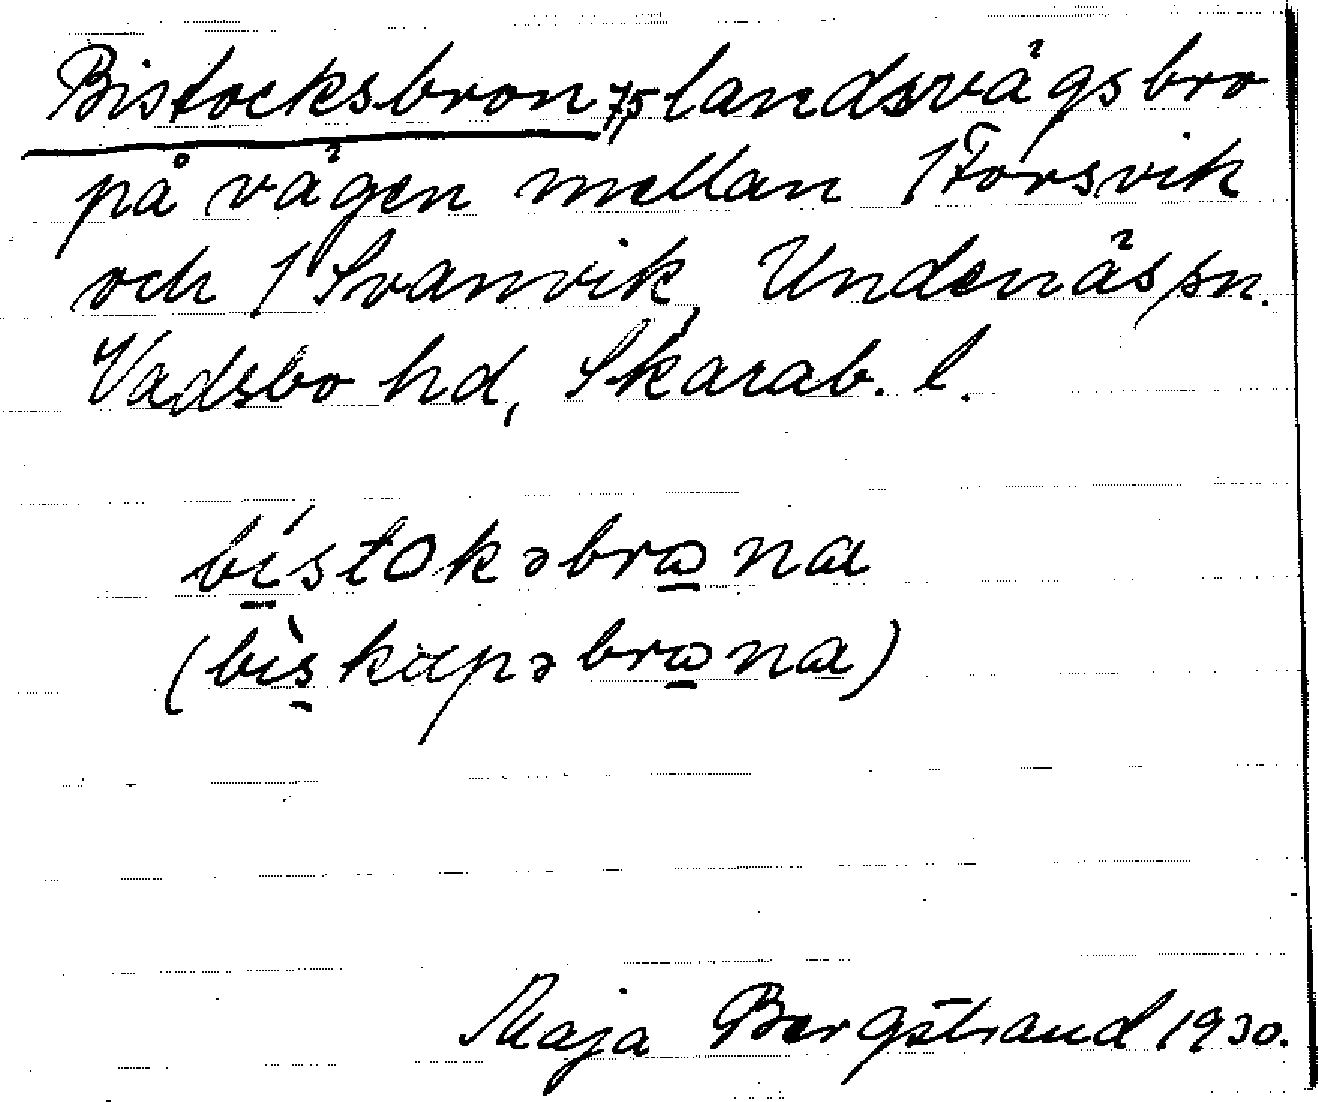 Bistocksbron, 75 landsvägsbro
på vägen mellan 1 Forsvik
och 1 Svanvik, Undenäs sn.
Vadsbo hd, Skarab. l.
bístokəbrωna
(bìskupəbrωna)
Maja Bergstrand 1930.